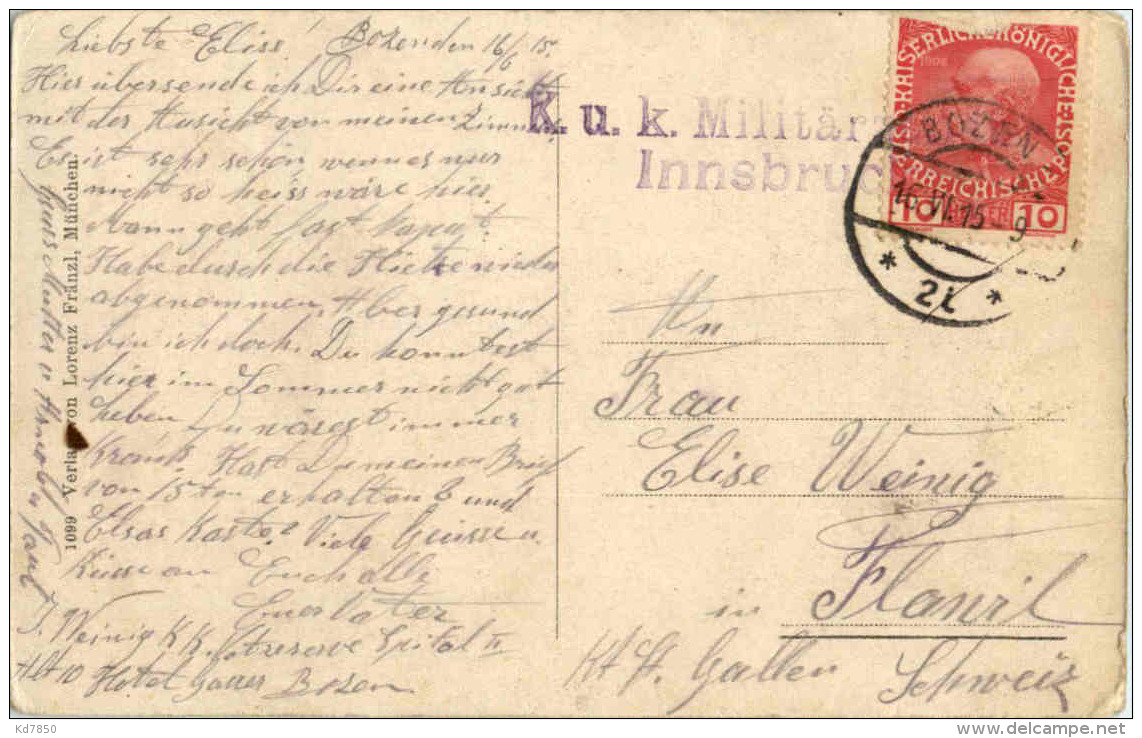 Liebste Elise! Bozen den 16/6 15.
Hier übersende ich Dir eine Ansicht
mit der Ansicht von meinen Zimmer
Es ist sehr schön wenn es nur
nicht so heiss wäre hier.
Mann geht fast kaput.
Habe durch die Hietze wieder
abgenommen, Aber gesund
bin ich doch. Du konntest
hier im Sommer nicht gut
leben Du wärest immer
Krank. Hast Du meinen Brief
von 15ten erhalten? und
Elsas Karte? Viele Grüsse u.
Küsse an Euch alle
Euer Vater
J. Weinig K.K. Reserve Spital II
Abt 10 Hotel Bozen
Mutter u
1099 Verlag von Lorenz Fränzl, München.
K. u. k. Militär
Innsbruc
KAISERLICH KÖNIGLICHE ÖSTERREICHISCHE POST
1908
10 HELLER 10
BOZEN
16.VI.15 9
* 2i *
An
Frau
Elise Weinig
in Flawil
Kt St. Gallen
Schweiz
Kd7850
www.delcampe.net